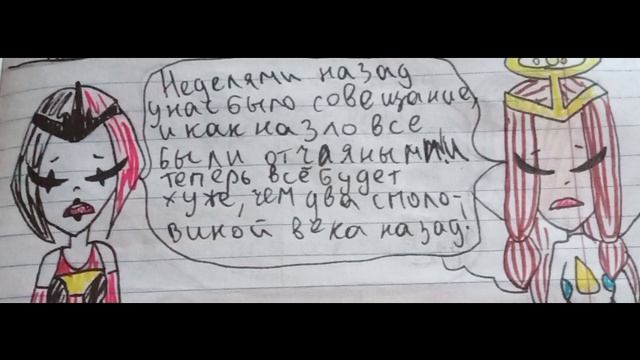 Неделями назад
у нас было совещание,
и как назло все
были отчаяными и
теперь всё будет
хуже, чем два споло-
виной века назад.